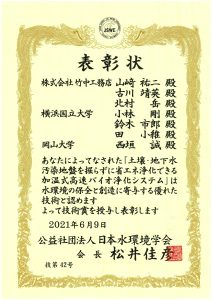 JSWE
表彰状
株式会社 竹中工務店 山﨑 祐二 殿
古川 靖英 殿
北村 岳 殿
横浜国立大学 小林 剛 殿
鈴木 市郎 殿
田 小維 殿
岡山大学 西垣 誠 殿
あなたによってなされた「土壌・地下水
汚染地盤を掘らずに省エネ浄化できる
加温式高速バイオ浄化システム」は
水環境の保全と創造に寄与する優れた
技術と認めます
よって技術賞を授与し表彰します
2021年6月9日
公益社団法人日本水環境学会
会長 松井佳彦
技第42号